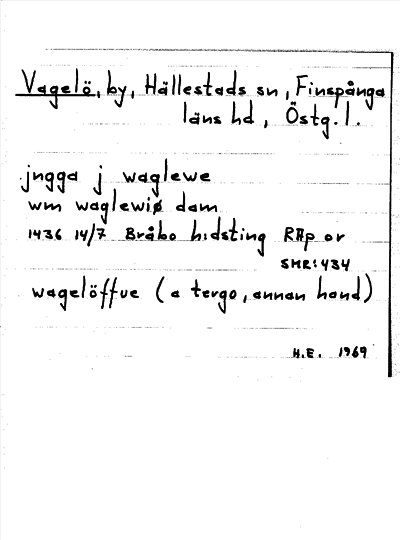 Vagelö, by, Hällestads sn, Finspånga
läns hd, Östg. l.
jngga j waglewe
wm waglewiø dam
1436 14/7 Bråbo h:dsting RAp or
SMR:434
wagelöffue (a tergo, annan hand)
H.E. 1969